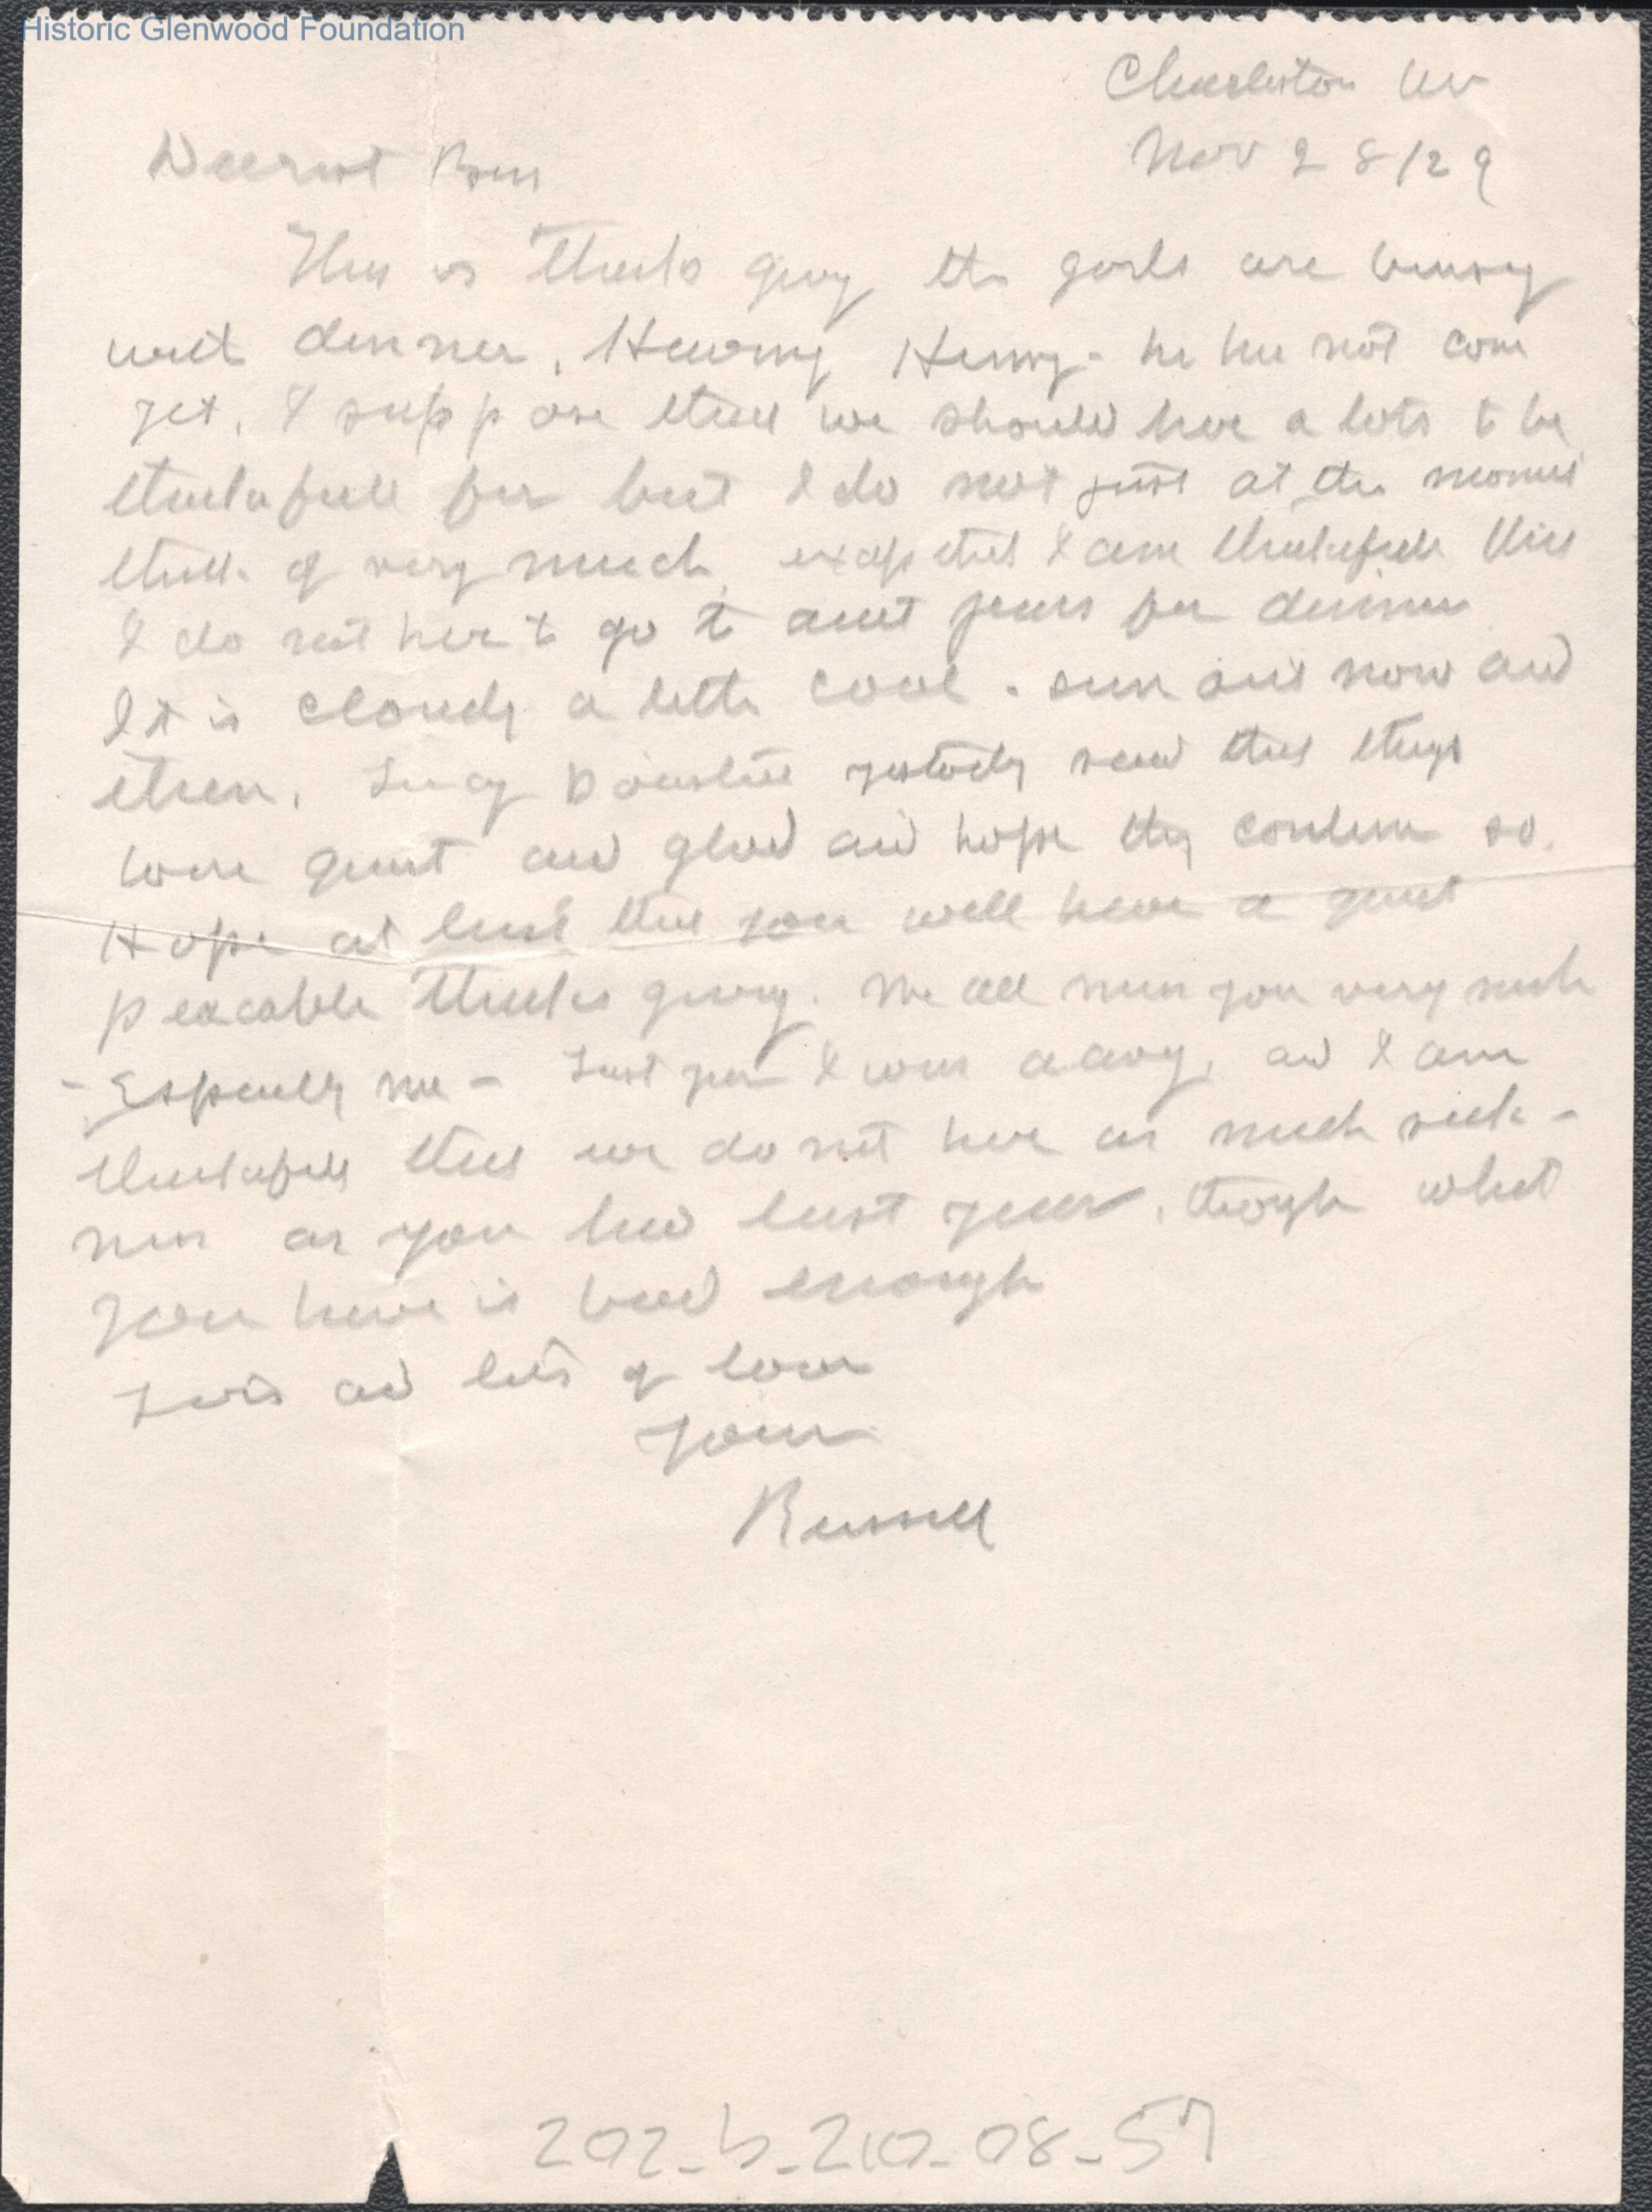 Historic Glenwood Foundation
Charleston WV
Nov 28/29
Dearest
This is Thanks giving the girls are busy
with dinner, Having Henry - he has not come
yet, I suppose that we should have a lots to be
thankfull for but I do not just at the moment
think of very much, except that I am thankfull that
I do not have to go to aunt for dinner
It is cloudy a little cool - sun out now and
then, Lucy yestedy said that things
were quiet and glad and hope they continue so.
Hope at least that you will have a quiet
peacable thanks giving. We all miss you very much
- Especially me - Last year I was away, and I am
thankfull that we do not have as much sick-
ness as you had last year, though what
you have is bad enough
Lots and lots of love
Your
Russell
202-b-210-08-57